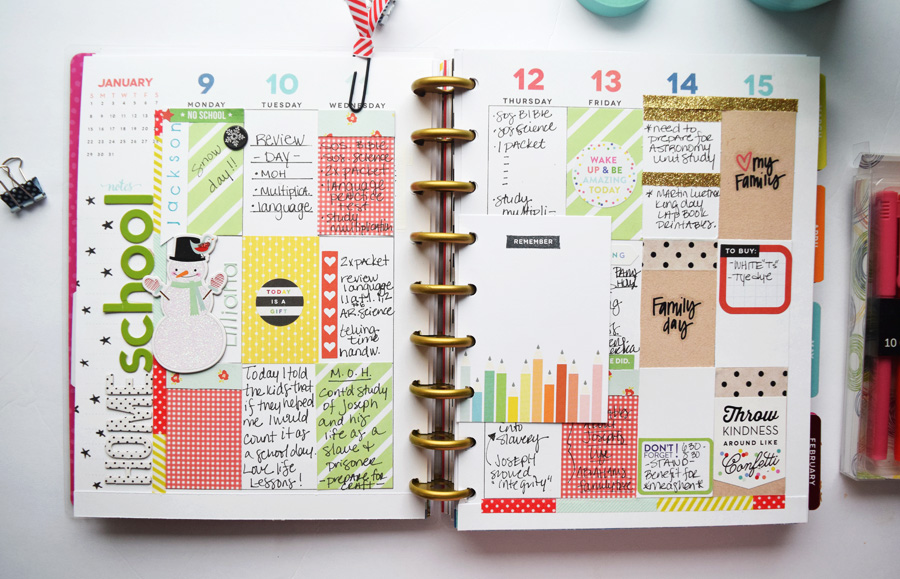 JANUARY
S M T W T F S
1 2 3 4 5 6 7
8 9 10 11 12 13 14
15 16 17 18 19 20 21
22 23 24 25 26 27 28
29 30 31
~notes~
HOME school
9
MONDAY
NO SCHOOL
Jackson
Snow
day!!
liliana
10
TUESDAY
Review
- DAY -
• MOH
• multiplica.
• language
TODAY
IS A
GIFT
Today I told
the kids that
if they helped
me I would
count it as
a school day.
Love life
Lessons!
WEDNESDAY
SOS Bible
SOS science
2x packet
language
practice
study
multiplication
2x packet
review
language
science
telling-
time
handw.
M.O.H.
Cont'd study
of Joseph
and his
life as a
slave &
prisoner
-prepare for
craft-
12
THURSDAY
• SOS BIBLE
SOS science
• 1 packet
• study
multipli-
REMEMBER
into
slavery
JOSEPH
showed
"integrity"
13
FRIDAY
WAKE
UP & BE
AMAZING
TODAY
DID.
about
Joseph's
14
SATURDAY
* need to
prepare for
ASTRONOMY
unit study
* MARTIN Luther
King day
LAPBOOK
PRINTABLES.
Family
day
DON'T
FORGET
6:30-
8:30
-STAND-
Benefit for
15
SUNDAY
my
Family
TO BUY:
-WHITE "T"S
-Tye dye
THROW
KINDNESS
AROUND LIKE
Confetti
APRIL
MAY
FEBRUARY
10